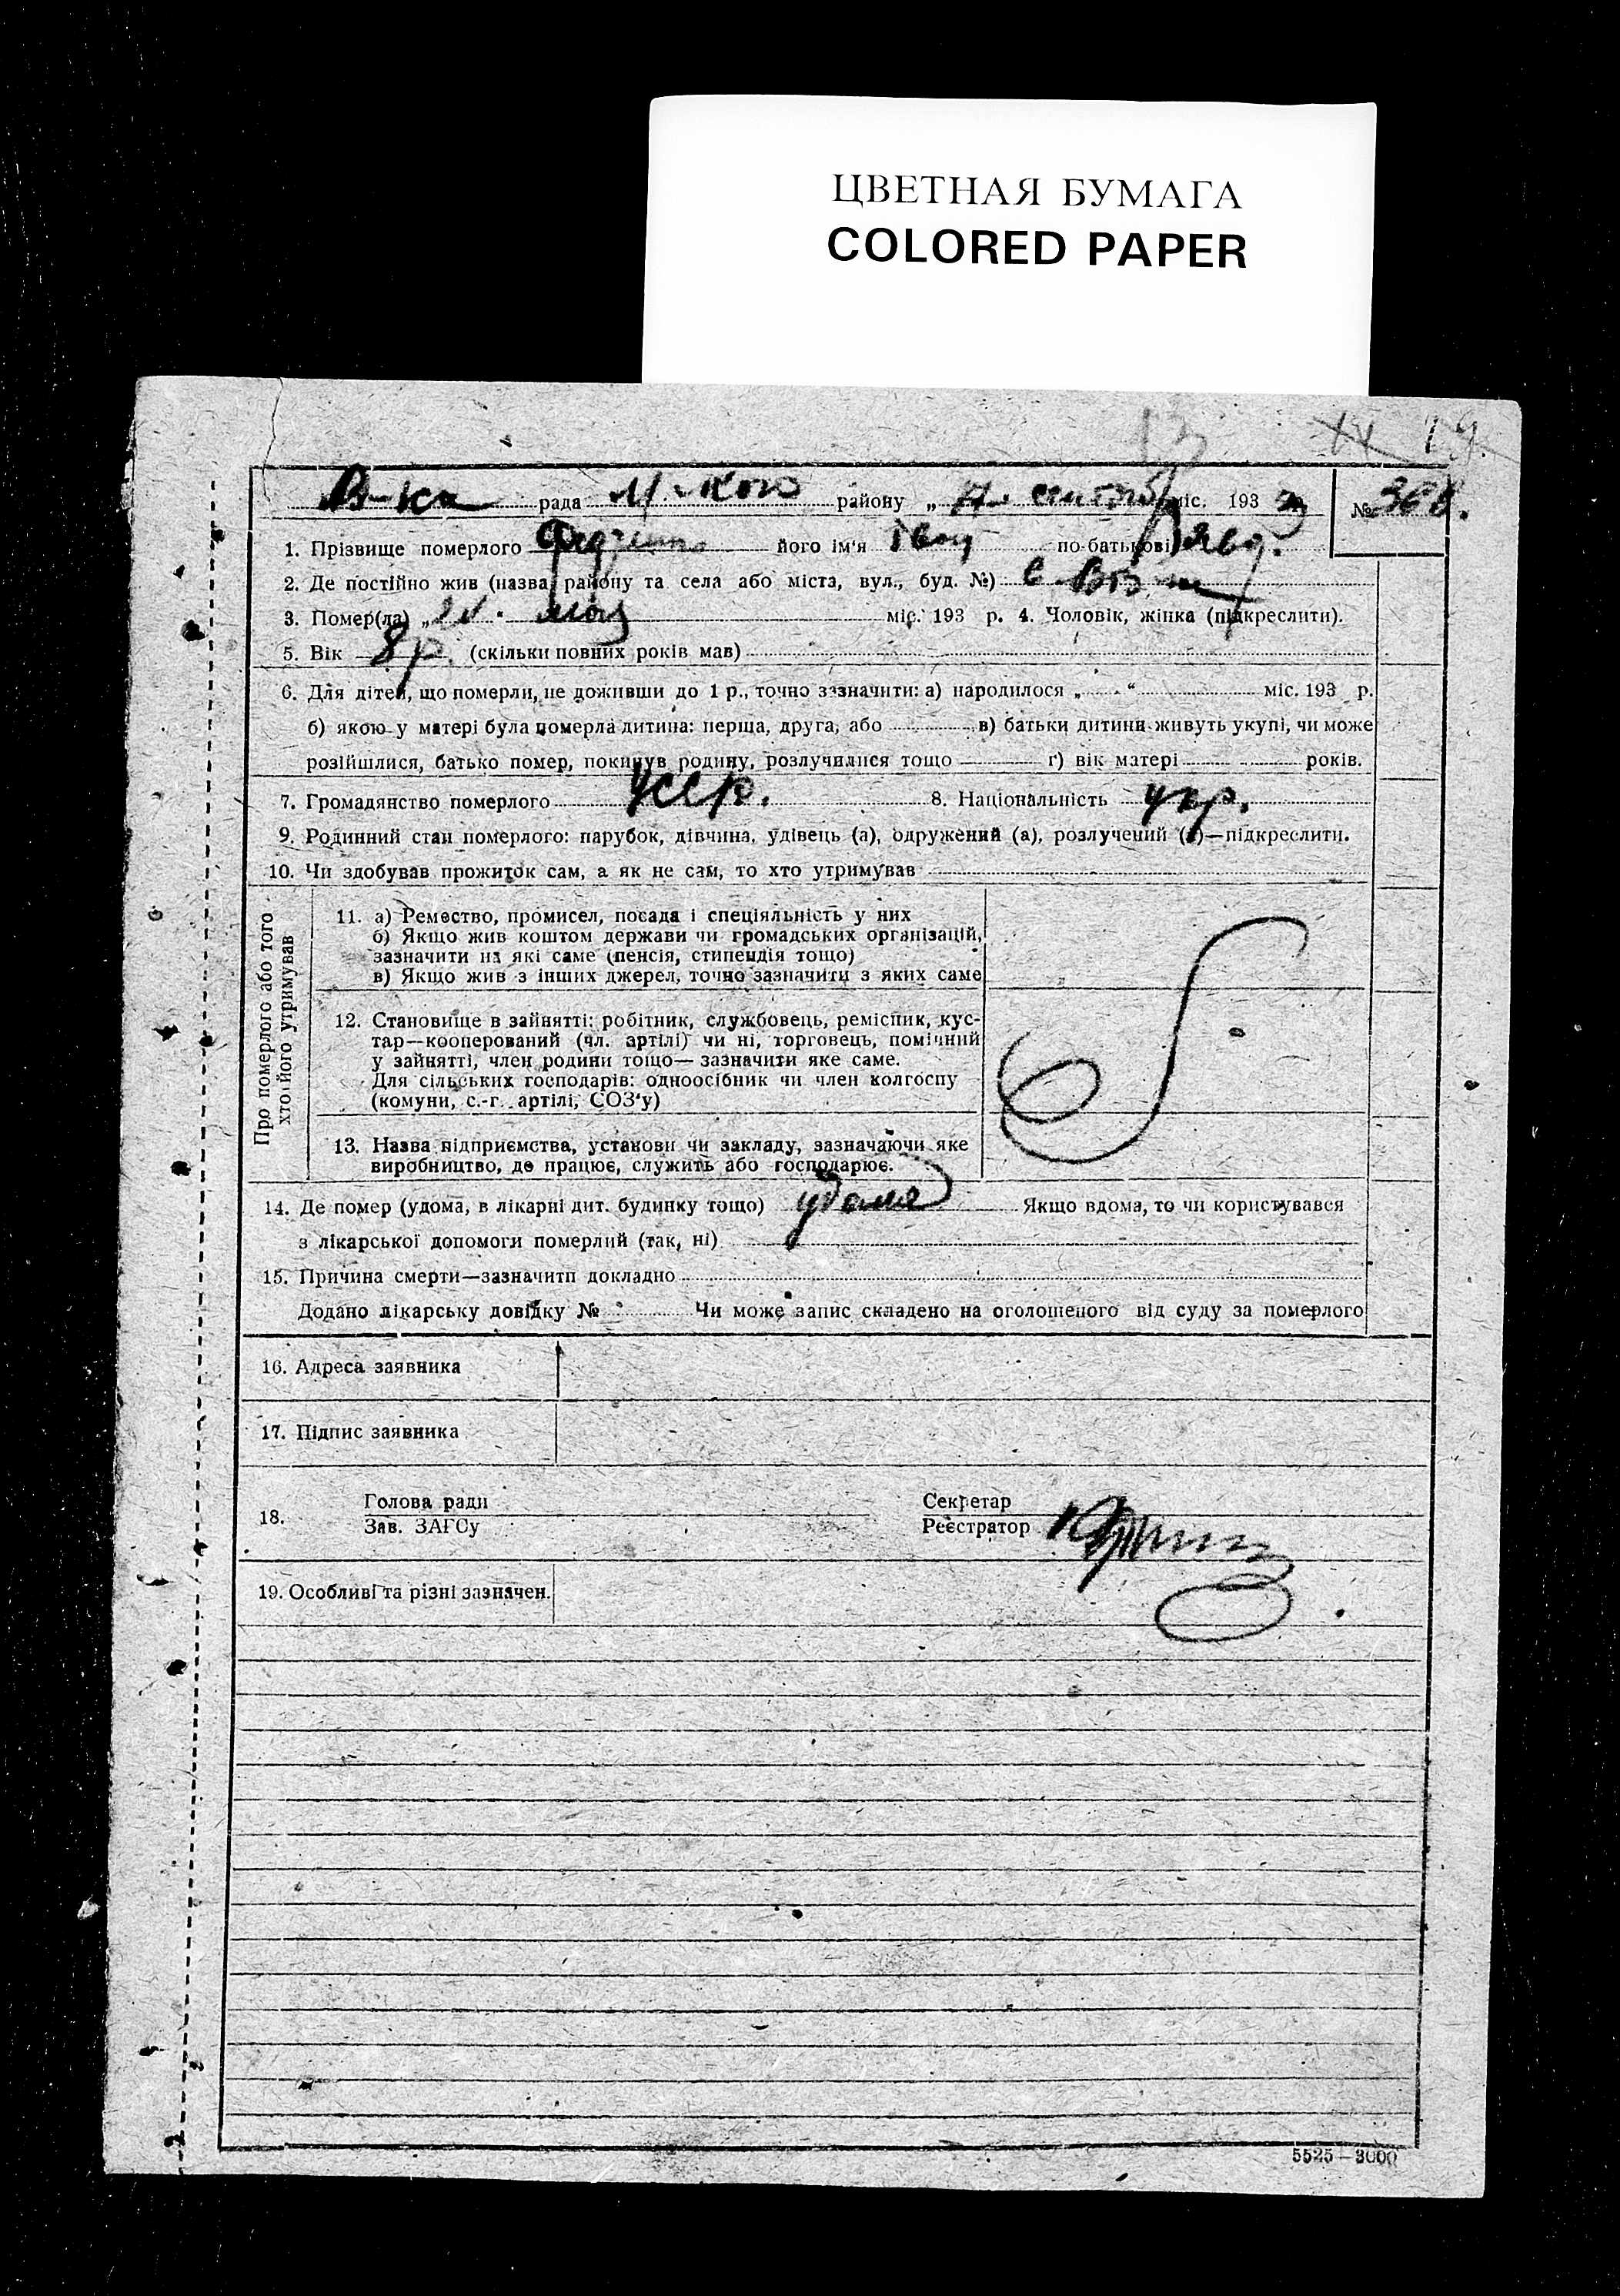 ЦВЕТНАЯ БУМАГА
COLORED PAPER
19.
В-ка рада М-кого району „ міс. 193 3 №
1. Прізвище померлого його ім'я Іван по-батькові
2. Де постійно жив (назва району та села або міста, вул., буд. №) с.
3. Помер(ла) „ мая міс. 193 р. 4. Чоловік, жінка (підкреслити).
5. Вік 8 р. (скільки повних років мав)
6. Для дітей, що померли, не доживши до 1 р., точно зазначити: а) народилося „ “ міс. 193 р.
б) якою у матері була померла дитина: перша, друга, або в) батьки дитини живуть укупі, чи може
розійшлися, батько помер, покинув родину, розлучилися тощо г) вік матері років.
7. Громадянство померлого Усср. 8. Національність укр.
9. Родинний стан померлого: парубок, дівчина, удівець (а), одружений (а), розлучений (а)—підкреслити.
10. Чи здобував прожиток сам, а як не сам, то хто утримував
Про померлого або того
хто його утримував
11. а) Ремество, промисел, посада і спеціяльність у них
б) Якщо жив коштом держави чи громадських організацій,
зазначити на які саме (пенсія, стипендія тощо)
в) Якщо жив з інших джерел, точно зазначити з яких саме
12. Становище в зайнятті: робітник, службовець, ремісник, кус-
тар—кооперований (чл. артілі) чи ні, торговець, помічний
у зайнятті, член родини тощо— зазначити яке саме.
Для сільських господарів: одноосібник чи член колгоспу
(комуни, с.-г. артілі, СОЗ'у)
13. Назва підприємства, установи чи закладу, зазначаючи яке
виробництво, де працює, служить або господарює.
14. Де помер (удома, в лікарні дит. будинку тощо) удома Якщо вдома, то чи користувався
з лікарської допомоги померлий (так, ні)
15. Причина смерти—зазначити докладно
Додано лікарську довідку № Чи може запис складено на оголошеного від суду за померлого
16. Адреса заявника
17. Підпис заявника
18. Голова ради Секретар
Зав. ЗАГСу Реєстратор
19. Особливі та різні зазначен.
5525—3000